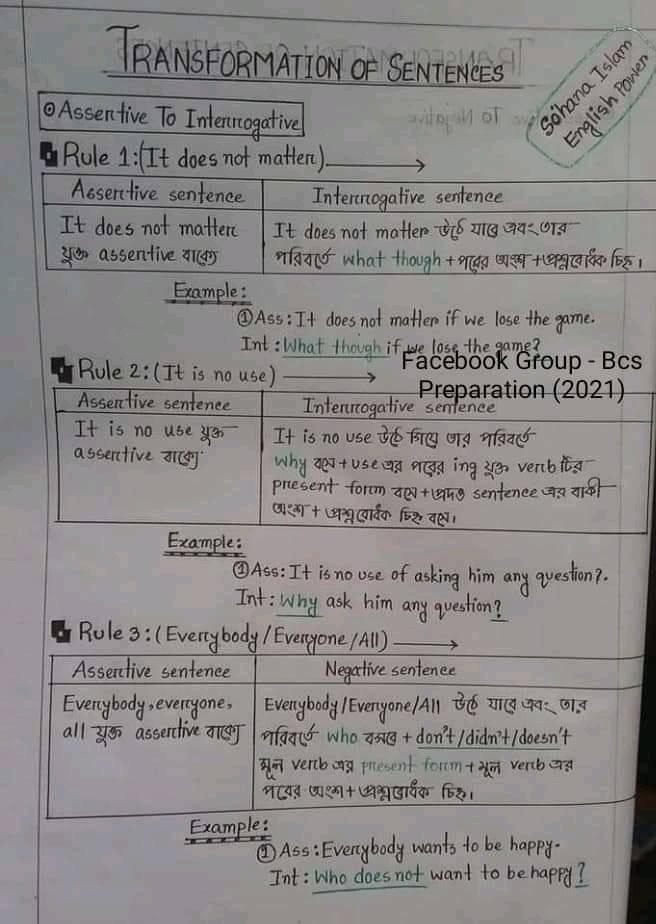 TRANSFORMATION OF SENTENCES
Sohana Islam
English Power
Assertive To Interrogative
Rule 1:(It does not matter)
Assertive sentence
Interrogative sentence
It does not matter
যুক্ত assertive বাক্যে
It does not matter উঠে যাবে এবং তার
পরিবর্তে what though + পরের অংশ + প্রশ্নবোধক চিহ্ন।
Example:
① Ass: It does not matter if we lose the game.
Int: What though if we lose the game?
Facebook Group - Bcs
Preparation (2021)
Rule 2:(It is no use)
Assertive sentence
Interrogative sentence
It is no use যুক্ত
assertive বাক্যে
It is no use উঠে গিয়ে তার পরিবর্তে
why বসে + use এর পরের ing যুক্ত verb টির
present form বসে + প্রদত্ত sentence এর বাকী
অংশ + প্রশ্নবোধক চিহ্ন বসে।
Example:
① Ass: It is no use of asking him any question?.
Int: Why ask him any question?
Rule 3:(Everybody/Everyone/All)
Assertive sentence
Negative sentence
Everybody, everyone,
all যুক্ত assertive বাক্যে
Everybody/Everyone/All উঠে যাবে এবং তার
পরিবর্তে who বসবে + don't/didn't/doesn't
মূল verb এর present form + মূল verb এর
পরের অংশ + প্রশ্নবোধক চিহ্ন।
Example:
① Ass: Everybody wants to be happy.
Int: Who does not want to be happy?